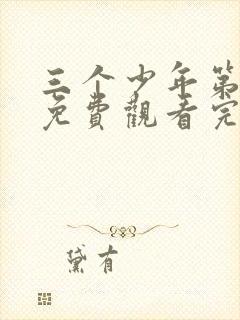 三个少年第
免费觀看完
黛有